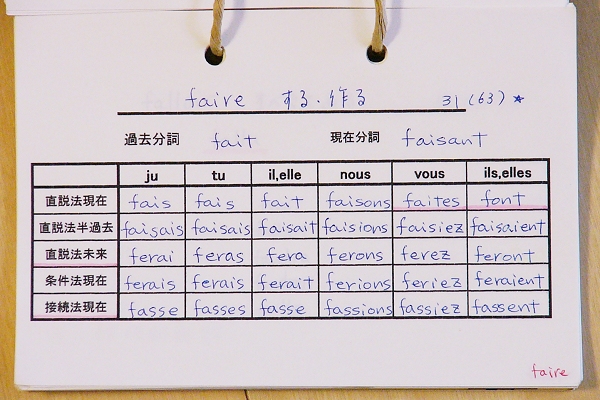 faire する・作る 31 (63) ★
過去分詞 fait 現在分詞 faisant
ju tu il,elle nous vous ils,elles
直説法現在 fais fais fait faisons faites font
直説法半過去 faisais faisais faisait faisions faisiez faisaient
直説法未来 ferai feras fera ferons ferez feront
条件法現在 ferais ferais ferait ferions feriez feraient
接続法現在 fasse fasses fasse fassions fassiez fassent
faire